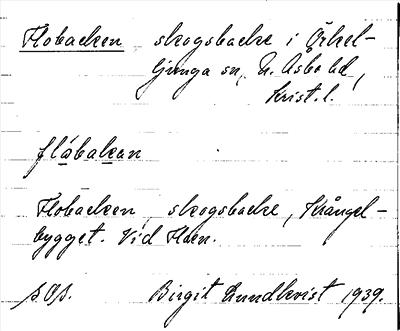 Flobacken skogsbacke i Örkel-
ljunga sn, N. Åsbo hd,
Krist. l.
flåbakan
Flobacken, skogsbacke, Krångel-
bygget. Vid Floen.
s. Birgit Lundkvist 1939.